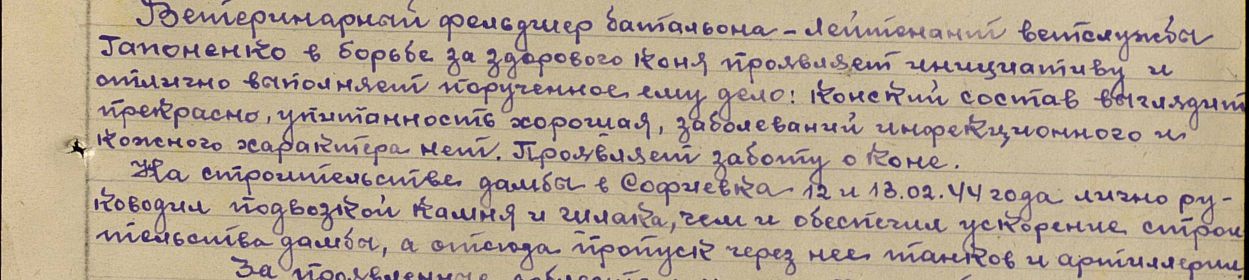 Ветеринарный фельдшер батальона - лейтенант ветслужбы
Гапоненко в борьбе за здорового коня проявляет инициативу и
отлично выполняет порученное ему дело: конский состав выглядит
прекрасно, упитанность хорошая, заболеваний инфекционного и
кожного характера нет. Проявляет заботу о коне.
На строительстве дамбы в Софиевка 12 и 13.02.44 года лично ру-
ководил подвозкой камня и шлака, чем и обеспечил ускорение строи
тельства дамбы, а отсюда пропуск через нее танков и артиллерии.
За проявленные